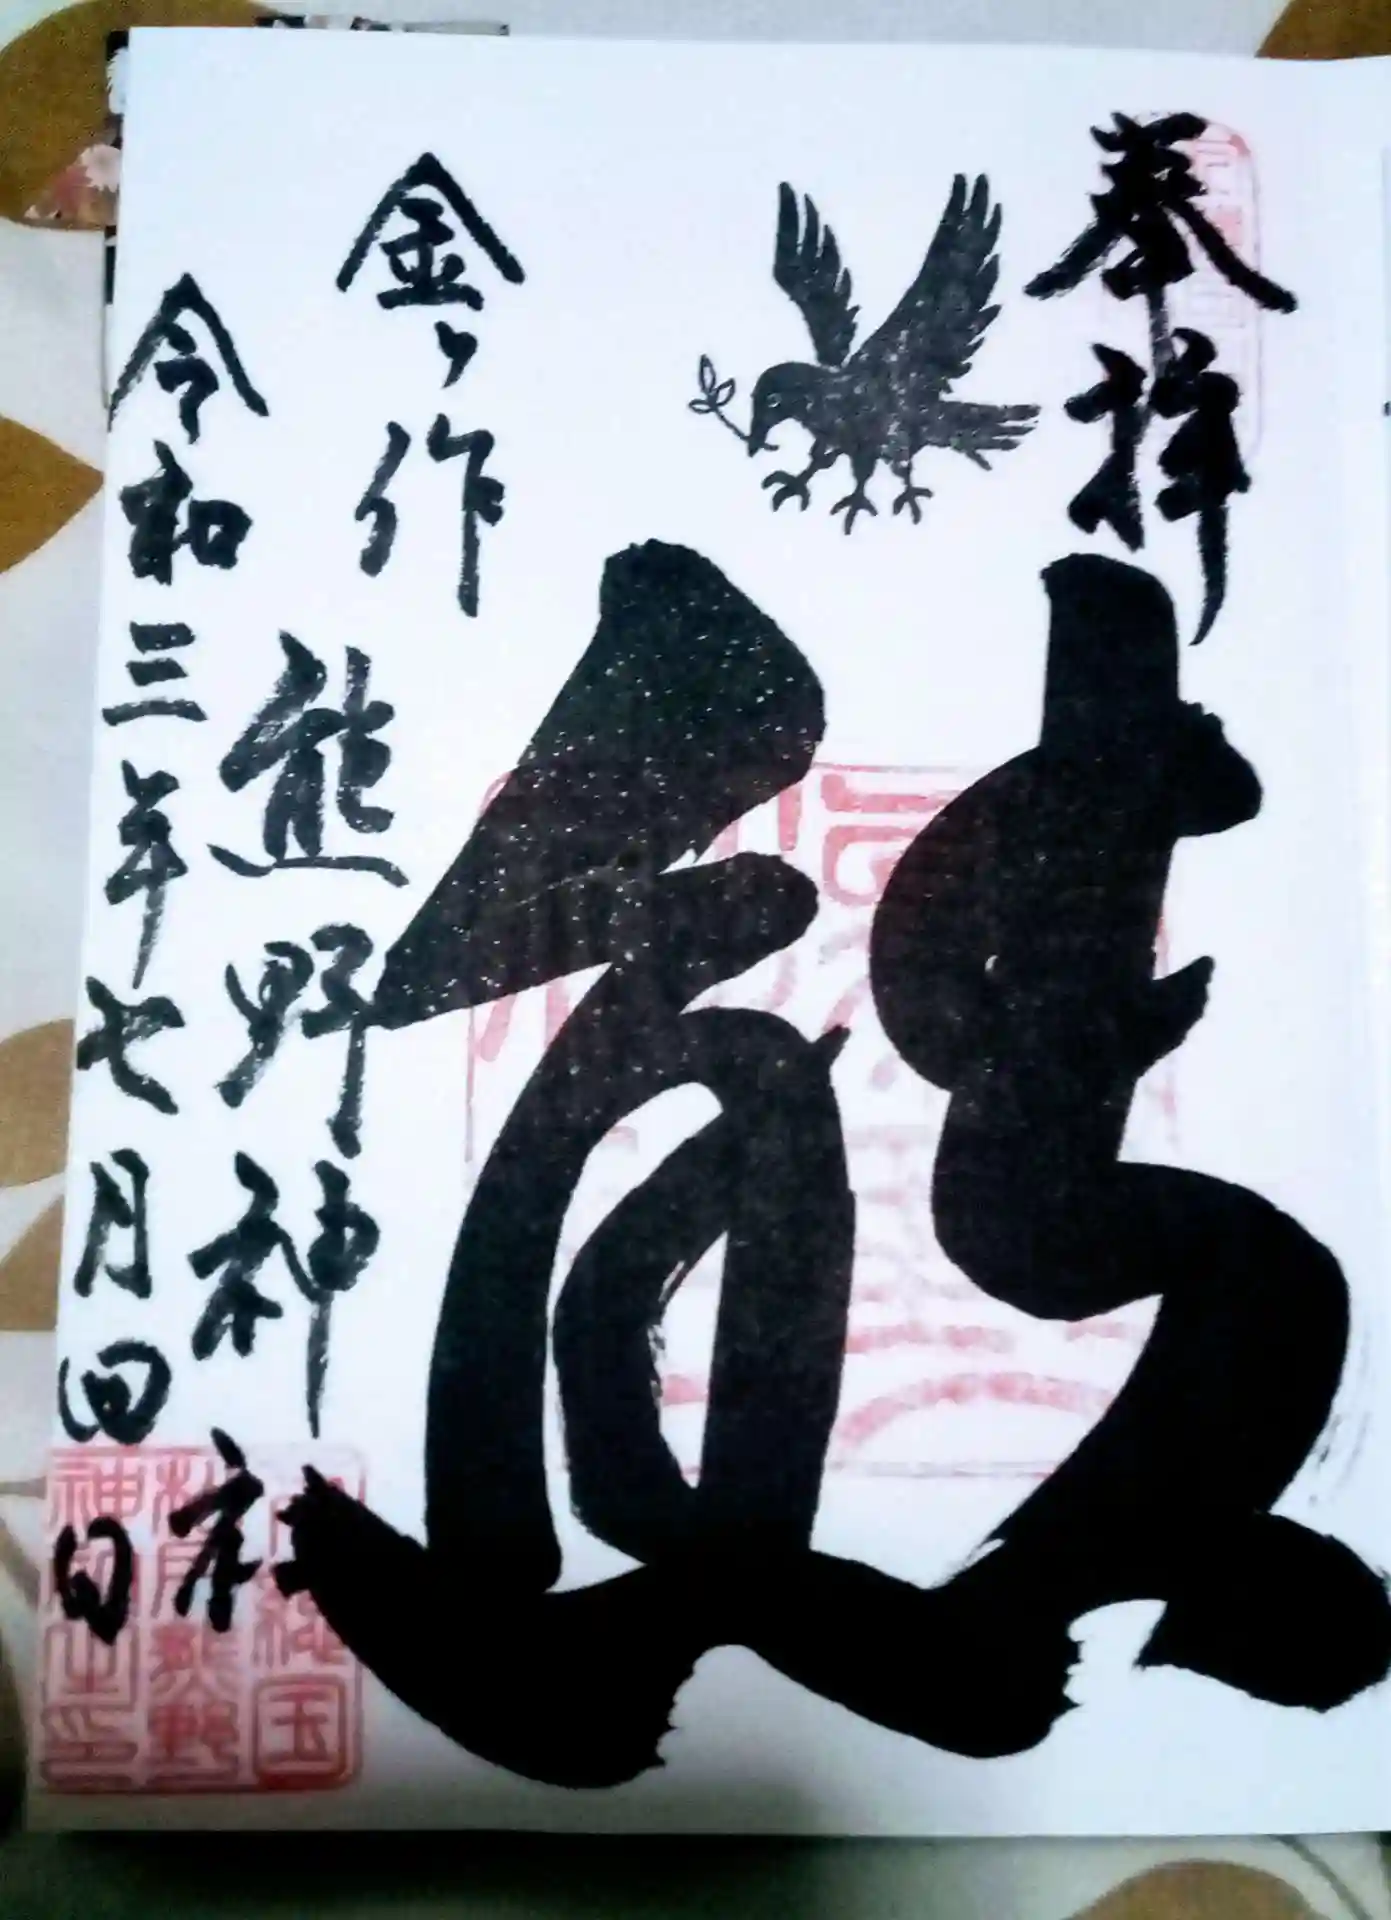 奉拝
熊
金ケ作
熊野神社
令和三年七月四日